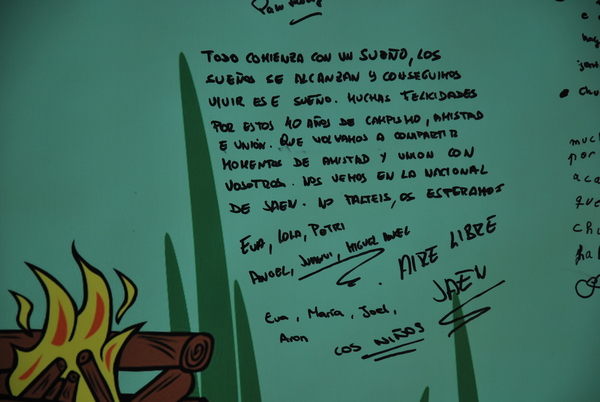 TODO COMIENZA CON UN SUEÑO, LOS
SUEÑOS SE ALCANZAN Y CONSEGUIMOS
VIVIR ESE SUEÑO. MUCHAS FELICIDADES
POR ESTOS 40 AÑOS DE CAMPISMO, AMISTAD
E UNIÓN. QUE VOLVAMOS A COMPARTIR
MOMENTOS DE AMISTAD Y UNION CON
VOSOTROS. NOS VEMOS EN LA NACIONAL
DE JAEN. NO FALTEIS, OS ESPERAMOS
EVA, LOLA, PETRI
ANGEL, JUANVI, MIGUEL ANGEL
. AIRE LIBRE
JAEN
Eva, María, Joel,
Aron
LOS NIÑOS
muc
por
aca
que
chu